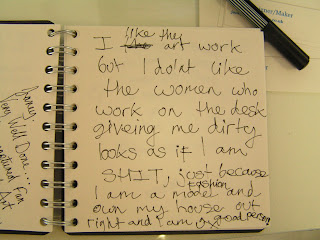 like this
I art work
but I do'nt like
the women who
work on the desk
giveing me dirty
looks as if I am
SHIT, just because
fashion
I am a model and
own my house out
right and I am a good person
Very Well Done...
Art
er/Maker
o.uk